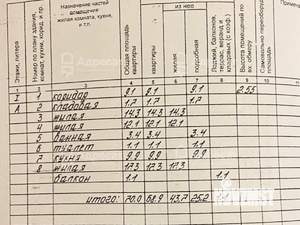 Этаж, литера
Номер по плану здания, комнат, кухни, корид. и пр.
Назначение частей помещения: жилая комната, кухня, и т.п.
Общая площадь квартиры
из нее
квартиры
жилая
подсобная
Лоджий, балконов, террас, веранд и кладовых (с коэф.)
Высота помещений по вн. обмеру
1 2 3 4 5 6 7 8 9 10
I 1 коридор 9.1 9.1 9.1 2.55
A 2 кладовая 1.7 1.7 1.7
3 жилая 14.3 14.3 14.3
4 жилая 12.1 12.1 12.1
5 ванная 2.4 2.4 2.4
6 туалет 1.1 1.1 1.1
7 кухня 9.9 9.9 9.9
8 жилая 17.3 17.3 17.3
балкон 1.1 1.1
итого: 70.0 68.9 43.7 25.2